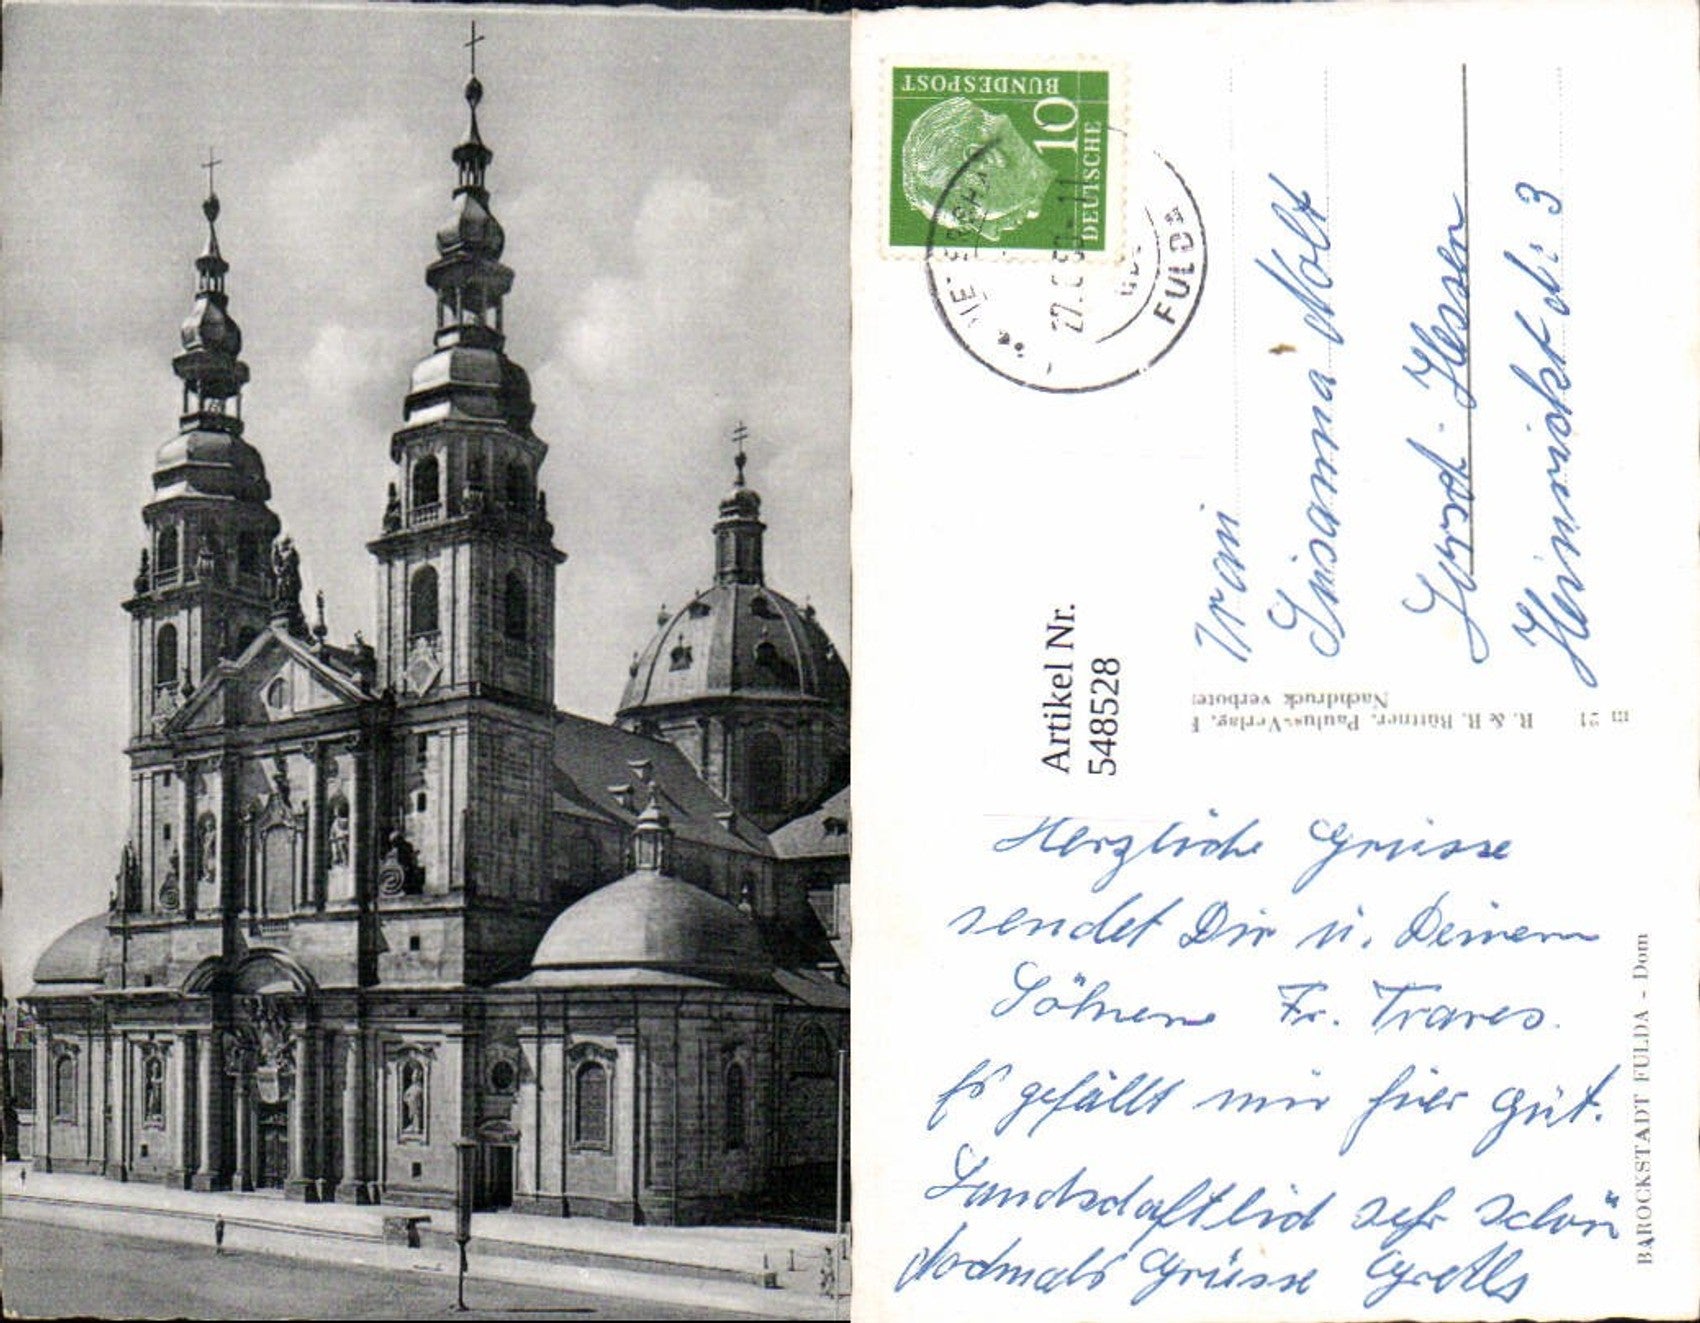 BUNDESPOST
10
DEUTSCHE
27.
FULDA
Susanna Nolt
Hessen
3
Artikel Nr.
548528
m 21 R. & R. Büttner, Paulus-Verlag, F
Nachdruck verboten
Herzliche Grüsse
sendet Dir u. Deinem
Söhnene Fr. Traves.
Es gefällt mir hier gut.
Landschaftlich sehr schön
Nochmals Grüsse
BAROCKSTADT FULDA - Dom